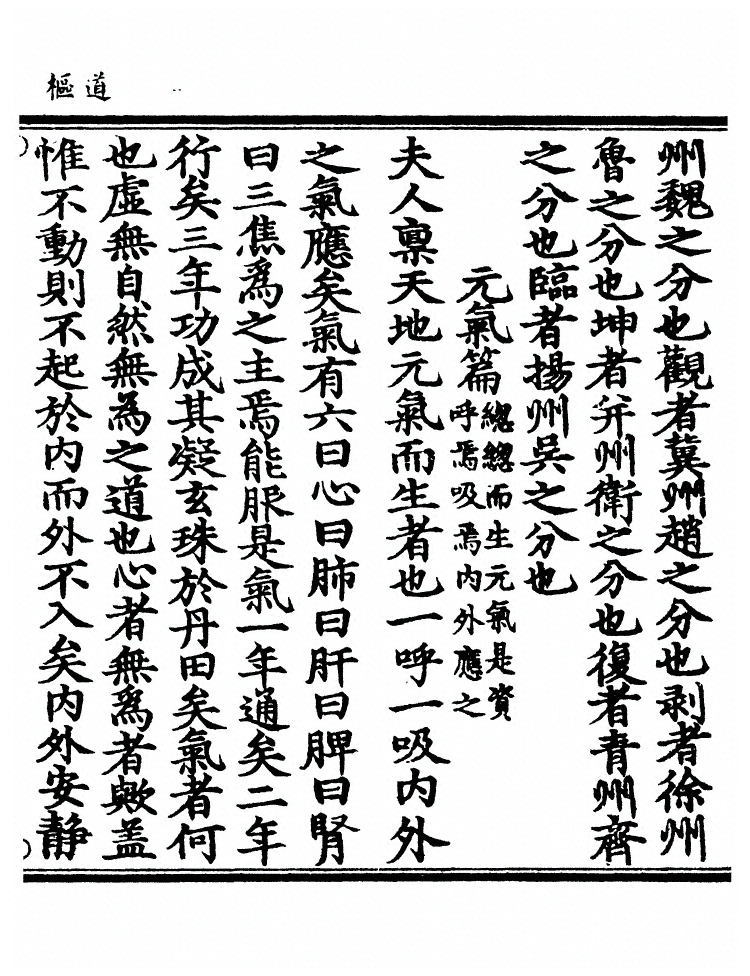 道樞
州魏之分也觀者冀州趙之分也剥者徐州
魯之分也坤者并州衛之分也復者青州齊
之分也臨者揚州吳之分也
元氣篇
緫緫而生元氣是資
呼焉吸焉内外應之
夫人禀天地元氣而生者也一呼一吸内外
之氣應矣氣有六曰心曰肺曰肝曰脾曰腎
曰三焦為之主焉能服是氣一年通矣二年
行矣三年功成其凝玄珠於丹田矣氣者何
也虛無自然無為之道也心者無為者歟盖
惟不動則不起於内而外不入矣内外安静